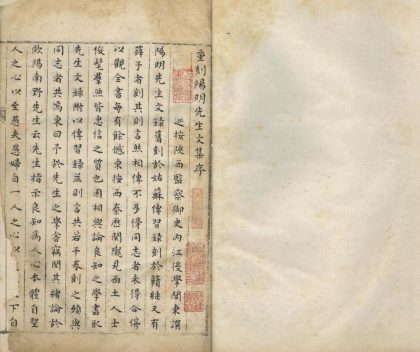 重刻陽明先生文集序
巡按陝西監察御史內江後學閭東譔
陽明先生文錄舊刻於姑蘇傳習錄刻於贛繼又有
薛子者刻其則言然相傳不多得同志者未得合併
以觀全書每有餘憾東按西秦歷關隴見西土人士
俊髦羣然皆忠信之質也因相與論良知之學盡取
先生文錄附以傳習錄並則言共若干卷刻之願與
同志者共焉東曰予於先生之學嘗竊聞其緒論於
歐陽南野先生云先生指示良知為人心本體自聖
人之心以至愚夫愚婦自一人之心以 下自